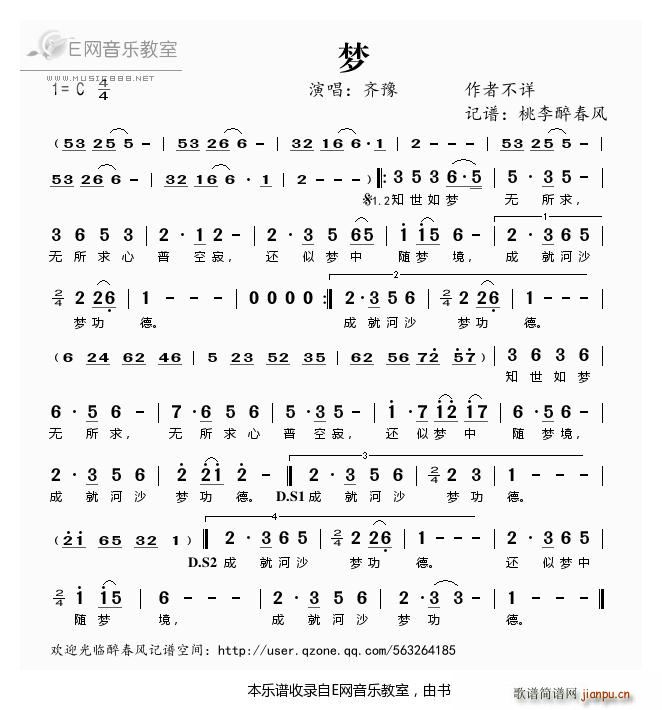 E网音乐教室
WWW.MUSIC888.NET
梦
1= C 4/4
演唱：齐豫
作者不详
记谱：桃李醉春风
( 53 25 5 - | 53 26 6 - | 32 16 6 · 1 | 2 - - - | 53 25 5 -
53 26 6 - | 32 16 6 · 1 | 2 - - - ) ‖: 3 5 3 6 · 5 | 5 · 3 5 -
𝄋1.2知世如梦 无所求，
3 6 5 3 | 2 · 1 2 - | 2 · 3 5 65 | 1 15 6 - | 2 · 3 6 5
1
无所求心 普空寂， 还似梦中 随梦境， 成就河沙
2/4 2 26 | 1 - - - | 0 0 0 0 :‖ 2 · 3 5 6 | 2/4 2 26 | 1 - - -
2
梦功 德。 成就河沙 梦功 德。
( 6 24 62 46 | 5 23 52 35 | 62 56 72 57 ) | 3 6 3 6
知世如梦
6 · 5 6 - | 7 · 6 5 6 | 5 · 3 5 - | 1 · 7 12 17 | 6 · 5 6 -
无所求， 无所求心 普空寂， 还似梦中 随梦境，
2 · 3 5 6 | 2 21 2 - ‖ 2 · 3 5 6 | 2/4 2 3 | 1 - - -
3
成就河沙 梦功德。 D.S1成就河沙 梦功 德。
( 21 65 32 1 ) ‖ 2 · 3 6 5 | 2/4 2 26 | 1 - - - | 2 · 3 6 5
4
D.S2 成就河沙 梦功 德。 还似梦中
2/4 1 15 | 6 - - - | 2 · 3 5 6 | 2 · 3 3 - | 1 - - - ‖
随梦 境， 成就河沙 梦功 德。
欢迎光临醉春风记谱空间：http://user.qzone.qq.com/563264185
本乐谱收录自E网音乐教室，由书
歌谱简谱网
jianpu.cn